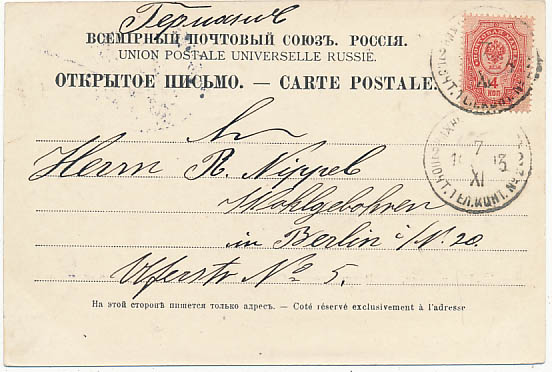 Германію
ВСЕМІРНЫЙ ПОЧТОВЫЙ СОЮЗЪ. РОССІЯ.
UNION POSTALE UNIVERSELLE RUSSIE.
ОТКРЫТОЕ ПИСЬМО. — CARTE POSTALE.
4 КОП
An
7
XI
ПОЧТ. ТЕЛ. КОНТ.
Herrn R. Nippel
Wohlgeboren
in Berlin i/N. 20.
Uferstr No 5.
На этой сторонѣ пишется только адресъ. — Coté réservé exclusivement à l'adresse